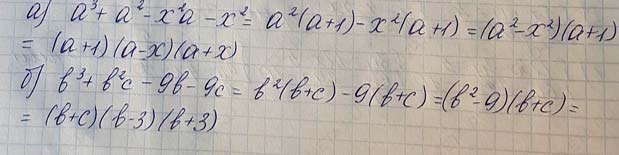 а) a³ + a² - x²a - x² = a²(a+1) - x²(a+1) = (a²-x²)(a+1)
= (a+1)(a-x)(a+x)
б) b³ + b²c - 9b - 9c = b²(b+c) - 9(b+c) = (b²-9)(b+c) =
= (b+c)(b-3)(b+3)